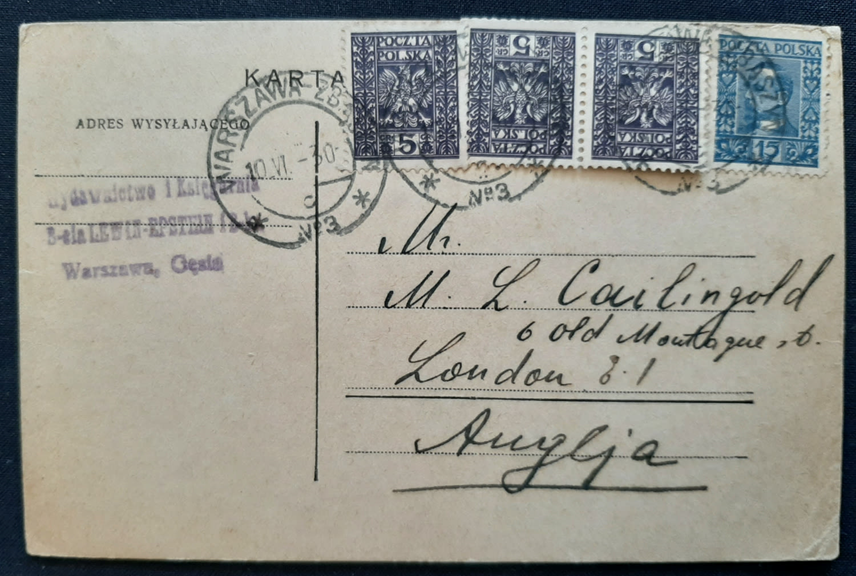 KARTA
ADRES WYSYŁAJĄCEGO
POCZTA
POLSKA
5
5
POCZTA
POLSKA
5
POCZTA
POLSKA
POCZTA POLSKA
15
WARSZAWA
10 VI -30
C
* Nº3 *
* Nº3 *
Nº3 *
Wydawnictwo i Księgarnia
B-cia LEWIN-EPSTEIN i
Warszawa, Gęsia
Mr.
M. L. Cailingold
6 old Montague st.
London E.1
Anglja